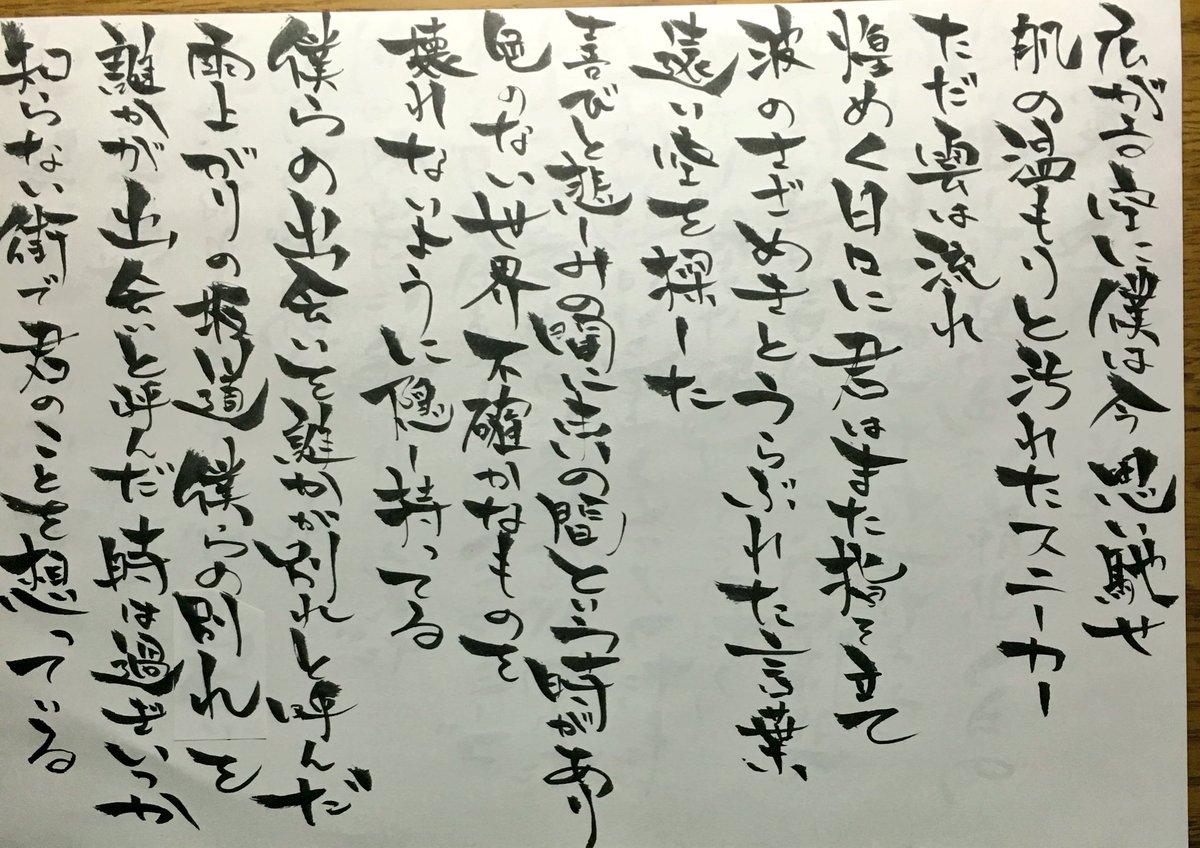 広がる空に僕は今 思い馳せ
肌の温もりと汚れたスニーカー
ただ雲は流れ
煌めく日口に君はまた指を立て
波のさざめきとうらぶれた言葉
遠い空を探した
喜びと悲しみの間に束の間という時があり
色のない世界 不確かなものを
壊れないように隠し持ってる
僕らの出会いを誰かが別れと呼んだ
雨上がりの坂道 僕らの別れを
誰かが出会いと呼んだ 時は過ぎいつか
知らない街で君のことを想っている